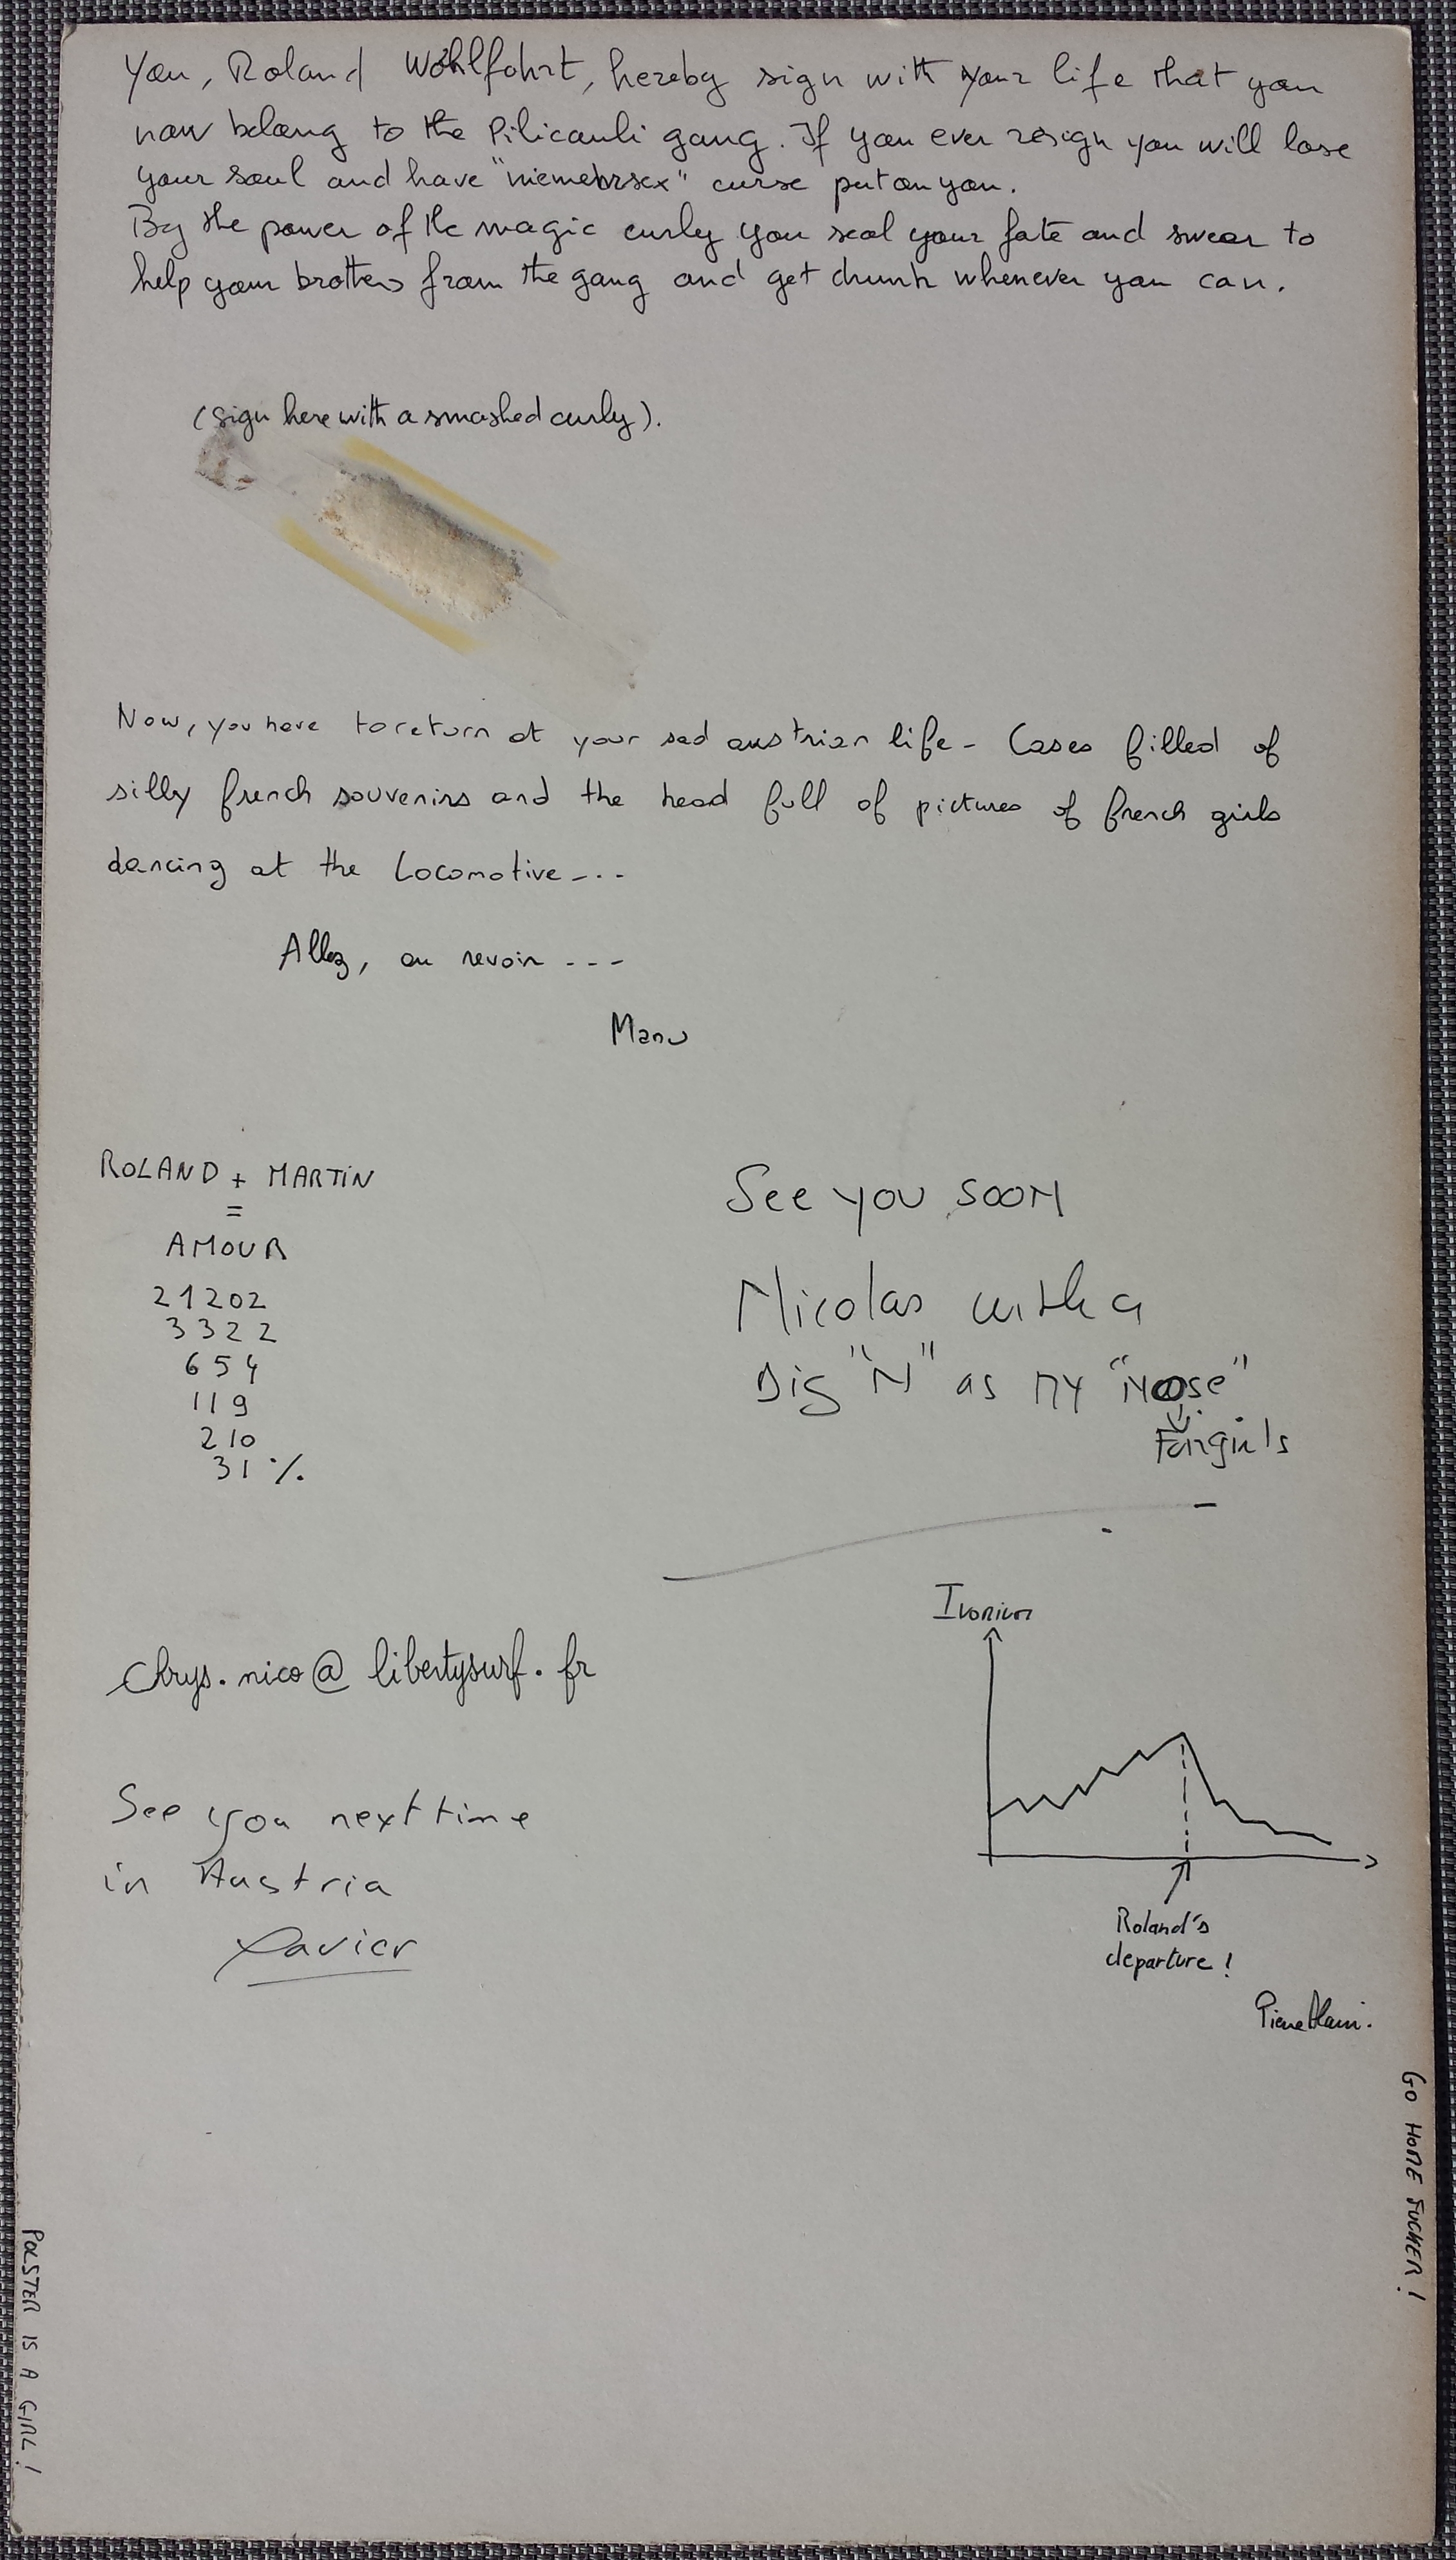 You, Roland Wohlfahrt, hereby sign with your life that you
now belong to the Pilicauli gang. If you ever resign you will lose
your soul and have "niemehrsex" curse put on you.
By the power of the magic curly you seal your fate and swear to
help your brothers from the gang and get drunk whenever you can.
(sign here with a smashed curly).
Now, you have to return at your sad austrian life - Cases filled of
silly french souvenirs and the head full of pictures of french girls
dancing at the Locomotive - . .
Allez, au revoir - - -
Manu
ROLAND + MARTIN
=
AMOUR
21202
3322
654
119
210
31 %
See you soon
Nicolas with a
Big "N" as my "Nose"
For girls
chrys.nico@libertysurf.fr
See you next time
in Austria
Xavier
Ivorium
Roland's
departure !
Pierre Alain.
GO HOME FUCKER !
POLSTER IS A GIRL !